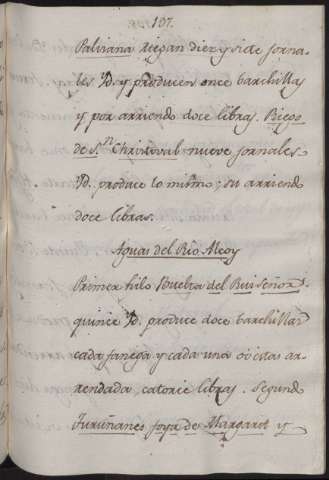 107.
Palviana riegan diez y siete jorna-
les Yd. y producen once barchillas
y por arriendo doce libras. Riego
de S.n Christoval nueve jornales
Yd. produce lo mismo; su arriendo
doce libras.
Aguas del Rio Alcoy
Primer hilo Buelta del Rui Señor
quince Yd. produce doce barchillas
cada fanega y cada una esta ar-
rendada, catorce libras. Segundo
joya de Margarit y